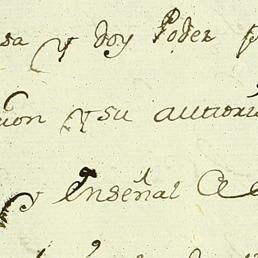 sa y doy Poder p
ion y su autori
y Enseñal